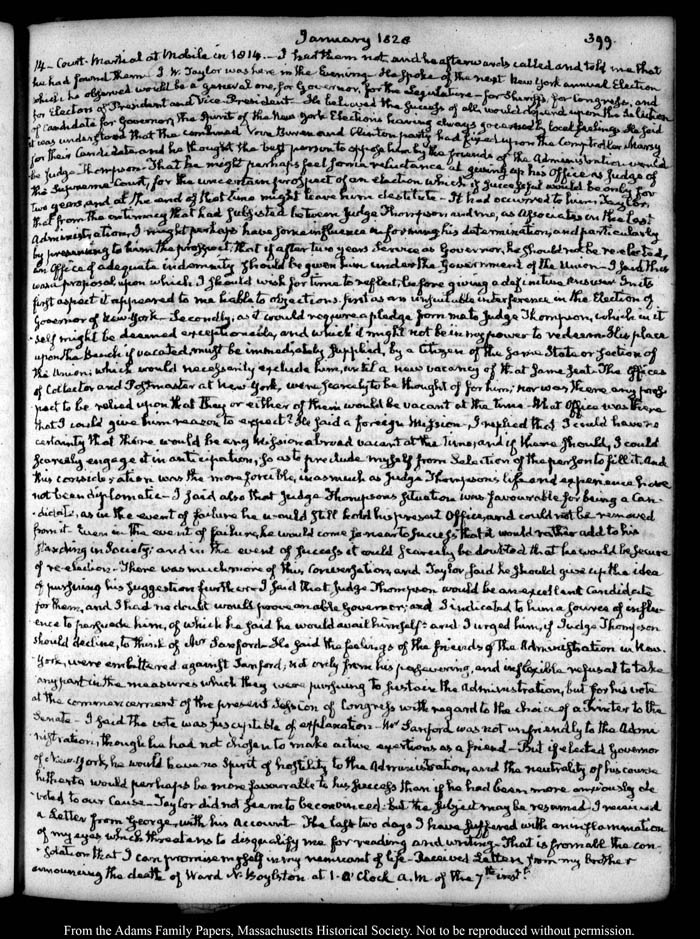 January 1828
399.
14 – Court-Martial at Mobile in 1814. – I had them not, and he afterwards called and told me that
he had found them. J. W. Taylor was here in the Evening – He spoke of the next New York annual Election
which he observed would be a general one, for Governor, for the Legislature – for Sheriffs, for Congress, and
for Electors of President and Vice-President – He believed the success of all would depend upon the Selection
of Candidate for Governor, the Spirit of the New York Elections having always so caused by local feelings. He said
it was understood that the combined Van Buren and Clinton party had fixed upon the Comptroller Marcy
for their Candidate and he thought the best person to oppose him by the friends of the Administration would
be Judge Thompson. That he might perhaps feel some reluctance at giving up his Office as Judge of
the Supreme Court, for the uncertain prospect of an election which if successful would be only for
two years, and at the end of that time might leave him destitute – It had occurred to him Taylor
that from the intimacy that had subsisted between Judge Thompson and me, as Associates in the last
Administration, I might perhaps have some influence in forming his determination, and particularly
by presenting to him the prospect, that if after two years service as Governor, he should not be re-elected,
an Office of adequate indemnity should be given him under the Government of the Union – I said this
was a proposal upon which I should wish for time to reflect, before giving a definitive answer. In its
first aspect it appeared to me liable to objections. first as an unsuitable interference in the Election of
Governor of New-York – Secondly, as it would require a pledge from me to Judge Thompson, which in it
self might be deemed exceptionable, and which it might not be in my power to redeem. His place
upon the Bench if vacated, must be immediately supplied, by a Citizen of the same State or section of
the Union; which would necessarily exclude him, until a new vacancy of that same seat – The Offices
of Collector and Postmaster at New York, were scarcely to be thought of for him; nor was there any pros
pect to be relied upon that they or either of them would be vacant at the time – What Office was there
that I could give him reason to expect? He said a foreign Mission – I replied that I could have no
certainty that there would be any Mission abroad vacant at the time, and if there should, I could
scarcely engage it in anticipation, so as to preclude myself from Selection of the person to fill it. And
this consideration was the more forcible, inasmuch as Judge Thompson's life and experience have
not been diplomatic – I said also that Judge Thompson's situation was favourable for being a Can-
didate, as in the event of failure he would still hold his present Office, and could not be removed
from it. Even in the event of failure, he would come so near to success that it would rather add to his
standing in Society; and in the event of success it could scarcely be doubted that he would be secure
of re-election. There was much more of this conversation, and Taylor said he should give up the idea
of pursuing his suggestion further – I said that Judge Thompson would be an excellent Candidate
for them, and I had no doubt would prove an able Governor; and I indicated to him a source of influ-
ence to persuade him, of which he said he would avail himself: and I urged him, if Judge Thompson
should decline, to think of Mr Sanford – He said the feelings of the friends of the Administration in New-
York, were embittered against Sanford; not only from his persevering, and inflexible refusal to take
any part in the measures which they were pursuing to sustain the Administration, but for his vote
at the commencement of the present Session of Congress with regard to the choice of a Printer to the
Senate – I said the vote was susceptible of explanation – Mr Sanford was not unfriendly to the Admi
nistration, though he had not chosen to make active exertions as a friend – But if elected Governor
of New-York, he would have no Spirit of hostility to the Administration, and the neutrality of his course
hitherto would perhaps be more favourable to his success than if he had been more anxiously de
voted to our Cause – Taylor did not seem to be convinced: but the subject may be resumed. I received
a Letter from George, with his Account – The last two days I have suffered with an inflammation
of my eyes which threatens to disqualify me for reading and writing – That is from all the con-
solation that I can promise myself in my remnant of life – Received Letters from my brother
announcing the death of Ward N. Boylston at 1. O'Clock A.M. of the 7th instt.
From the Adams Family Papers, Massachusetts Historical Society. Not to be reproduced without permission.